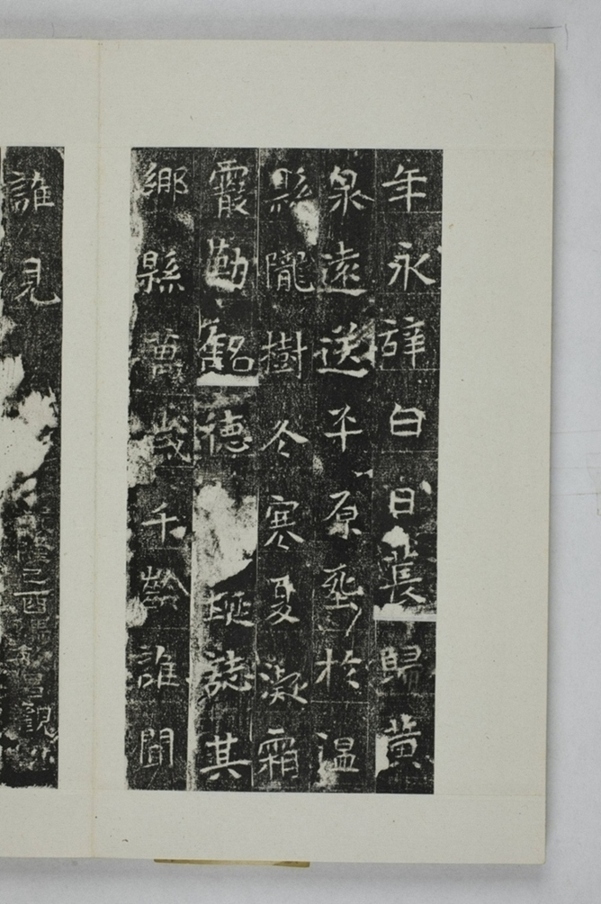 年永辝白日長歸黃
泉遠送平原葬於温
縣隴樹冬寒夏凝霜
霰勒銘德埏誌其
鄉縣萬歲千齡誰聞
誰見